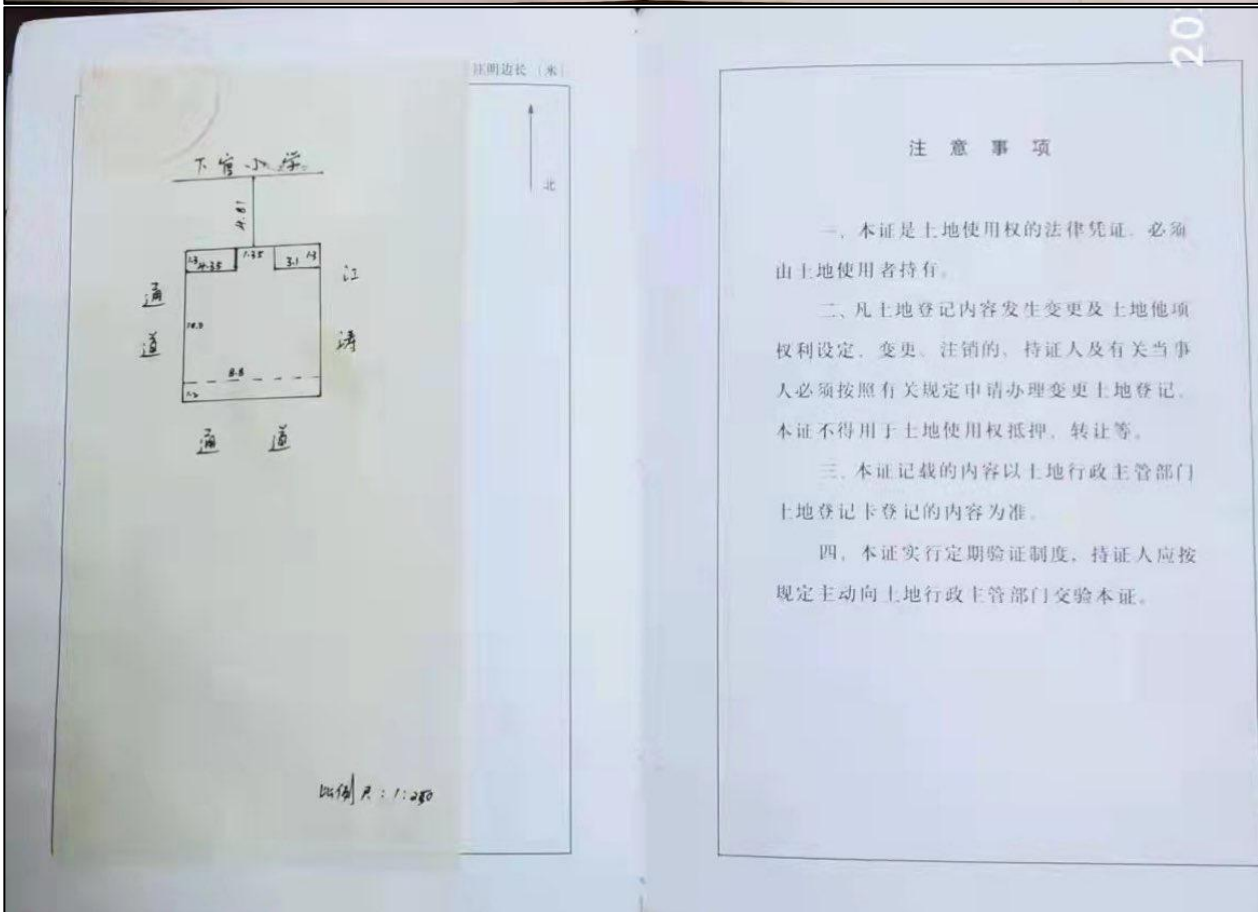 注明边长（米）
北
下官小学
4.81
1.3
4.35
1.35
3.1
1.3
江
涛
通
道
8.8
1.2
通 道
比例尺：1:250
20
注意事项
一、本证是土地使用权的法律凭证，必须
由土地使用者持有。
二、凡土地登记内容发生变更及土地他项
权利设定、变更、注销的，持证人及有关当事
人必须按照有关规定申请办理变更土地登记，
本证不得用于土地使用权抵押、转让等。
三、本证记载的内容以土地行政主管部门
土地登记卡登记的内容为准。
四、本证实行定期验证制度，持证人应按
规定主动向土地行政主管部门交验本证。